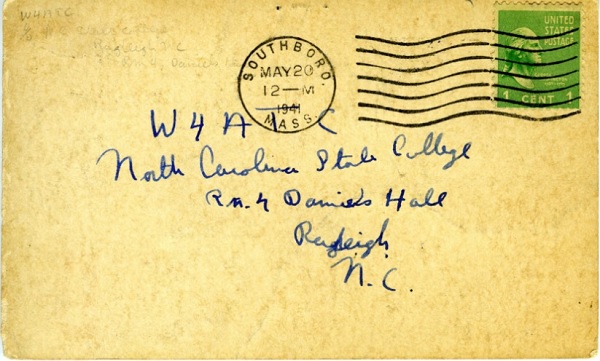 W4ATC
Raleigh N C
Rm 4, Daniels
SOUTHBORO.
MAY 20
12—M
1941
MASS.
UNITED
STATES
POSTAGE
1 CENT 1
W 4 A T C
North Carolina State College
Rm. 4 Daniels Hall
Raleigh
N. C.